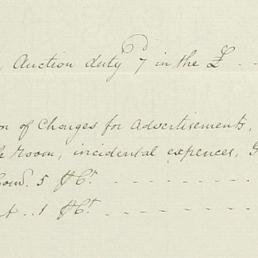 Auction duty 7d in the £ - -
on of Charges for Advertisements,
Room, incidental expences,
5 ⅌ Ct - - - - -
1 ⅌ Ct - - - - -